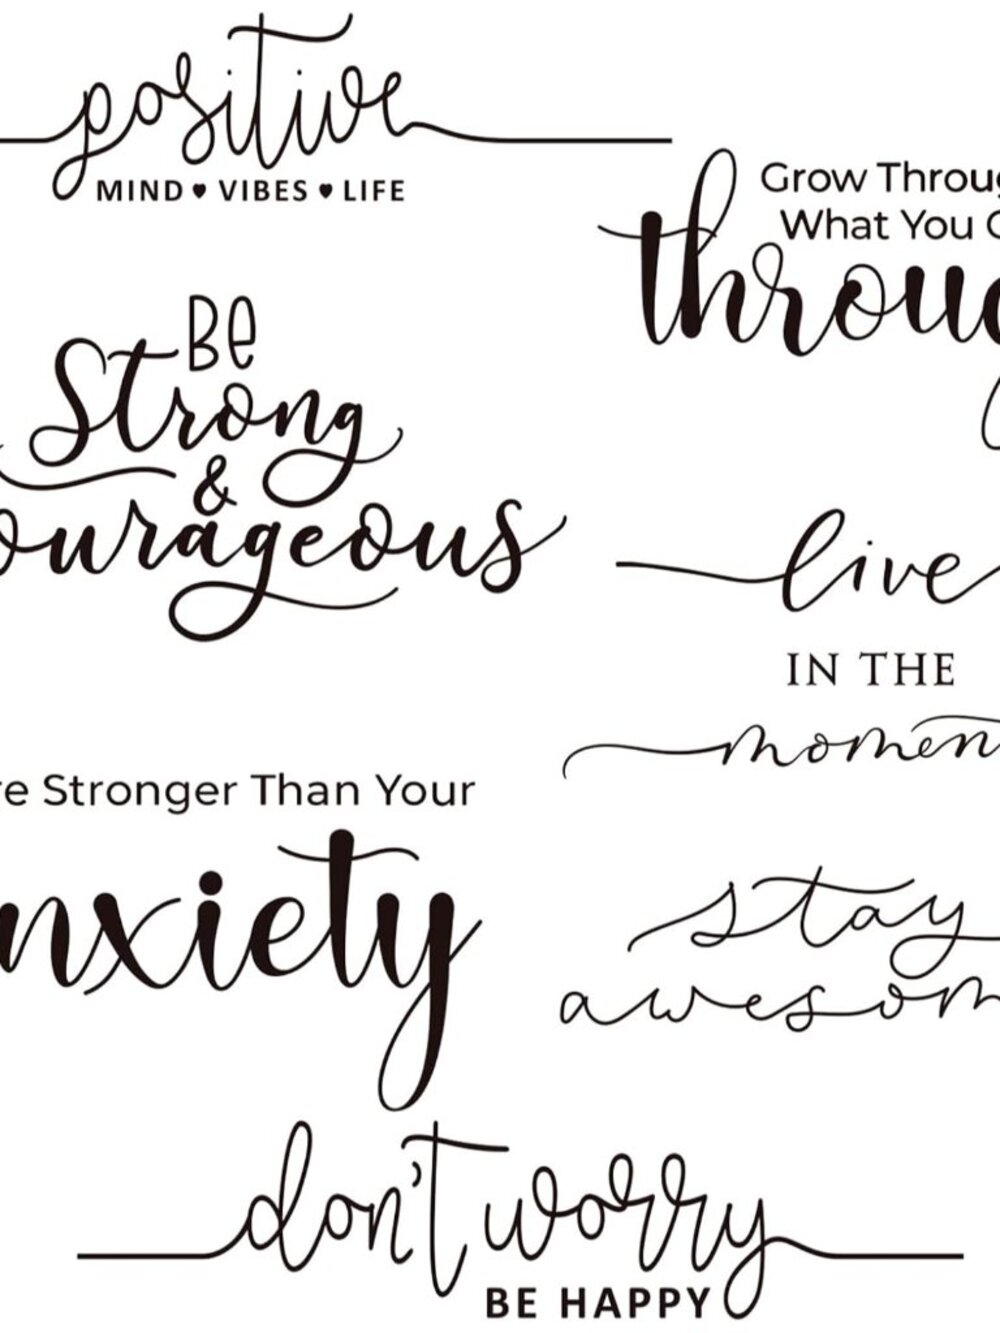 positive
MIND ♥ VIBES ♥ LIFE
Grow Throug
What You
throug
Be
Strong
&
ourageous
live
IN THE
momen
re Stronger Than Your
nxiety
stay
awesom
don't worry
BE HAPPY